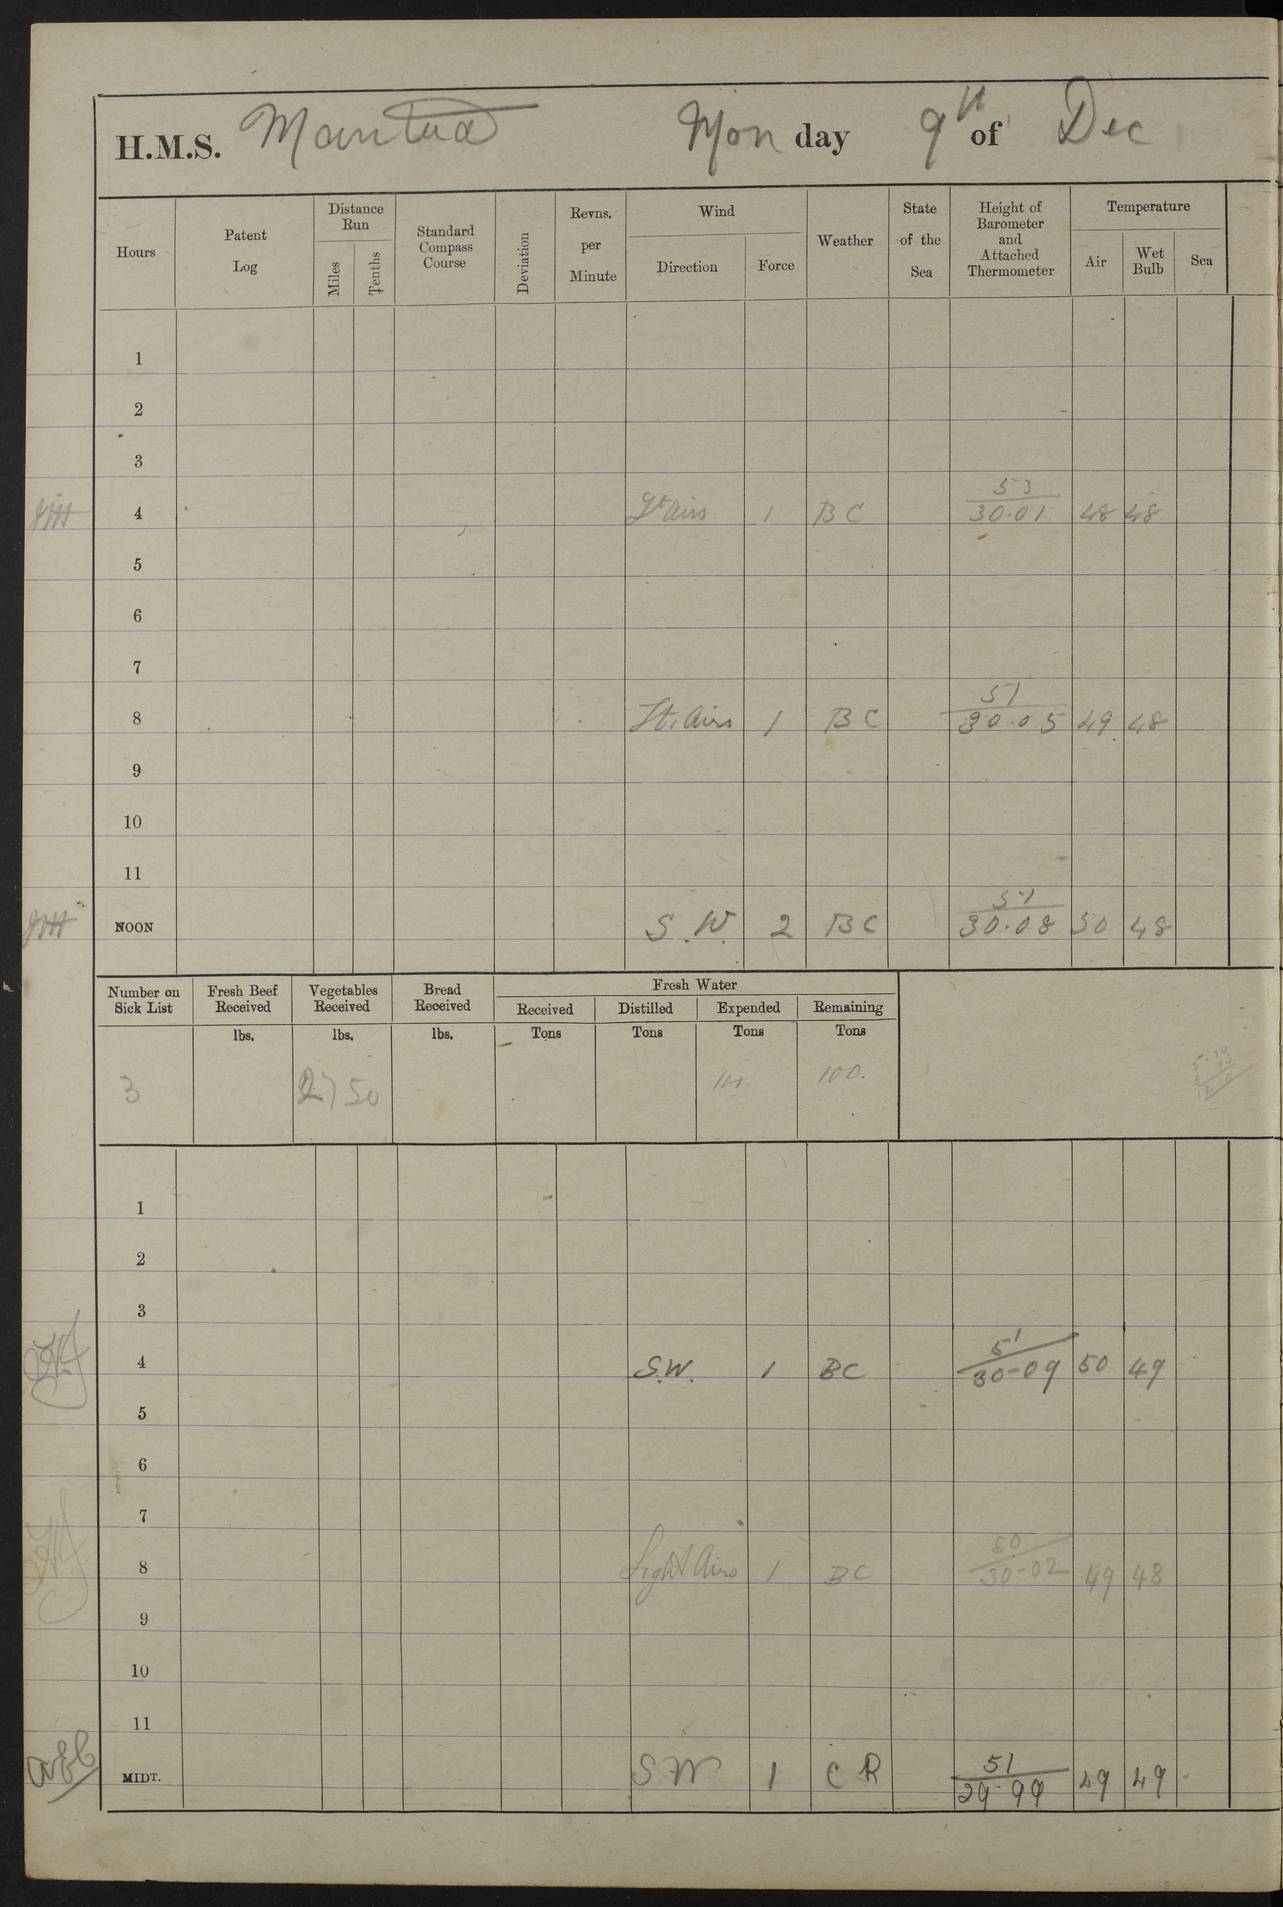 H.M.S. Mantua Mon day 9th of Dec
Hours Patent Log Distance Run Miles Tenths Standard Compass Course Deviation Revns. per Minute Wind Direction Force Weather State of the Sea Height of Barometer and Attached Thermometer Temperature Air Wet Bulb Sea
1
2
3
53
4 Lt airs 1 BC 30.01 48 48
5
6
7
51
8 Lt. Airs 1 BC 30.05 49 48
9
10
11
51
NOON S.W. 2 BC 30.08 50 48
Number on Sick List Fresh Beef Received Vegetables Received Bread Received Fresh Water
Received Distilled Expended Remaining
lbs. lbs. lbs. Tons Tons Tons Tons
3 2750 100.
1
2
3
51
4 S.W. 1 BC 30-09 50 49
5
6
7
50
8 Light Airs 1 BC 30-02 49 48
9
10
11
51
MIDT. SW 1 CR 29.99 49 49